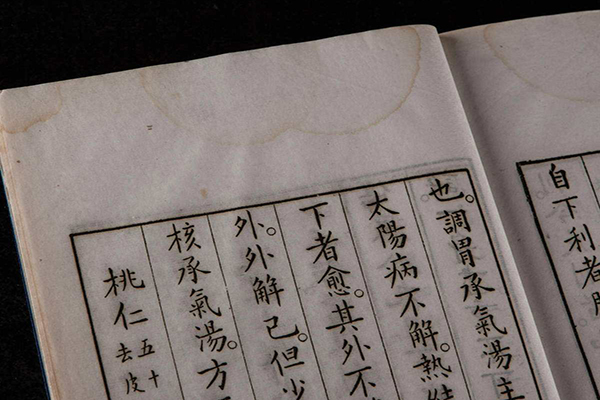 自下利者
也。調胃承氣湯主
太陽病不解。熱結
下者愈。其外不
外。外解已。但少
核承氣湯。方
桃仁五十去皮